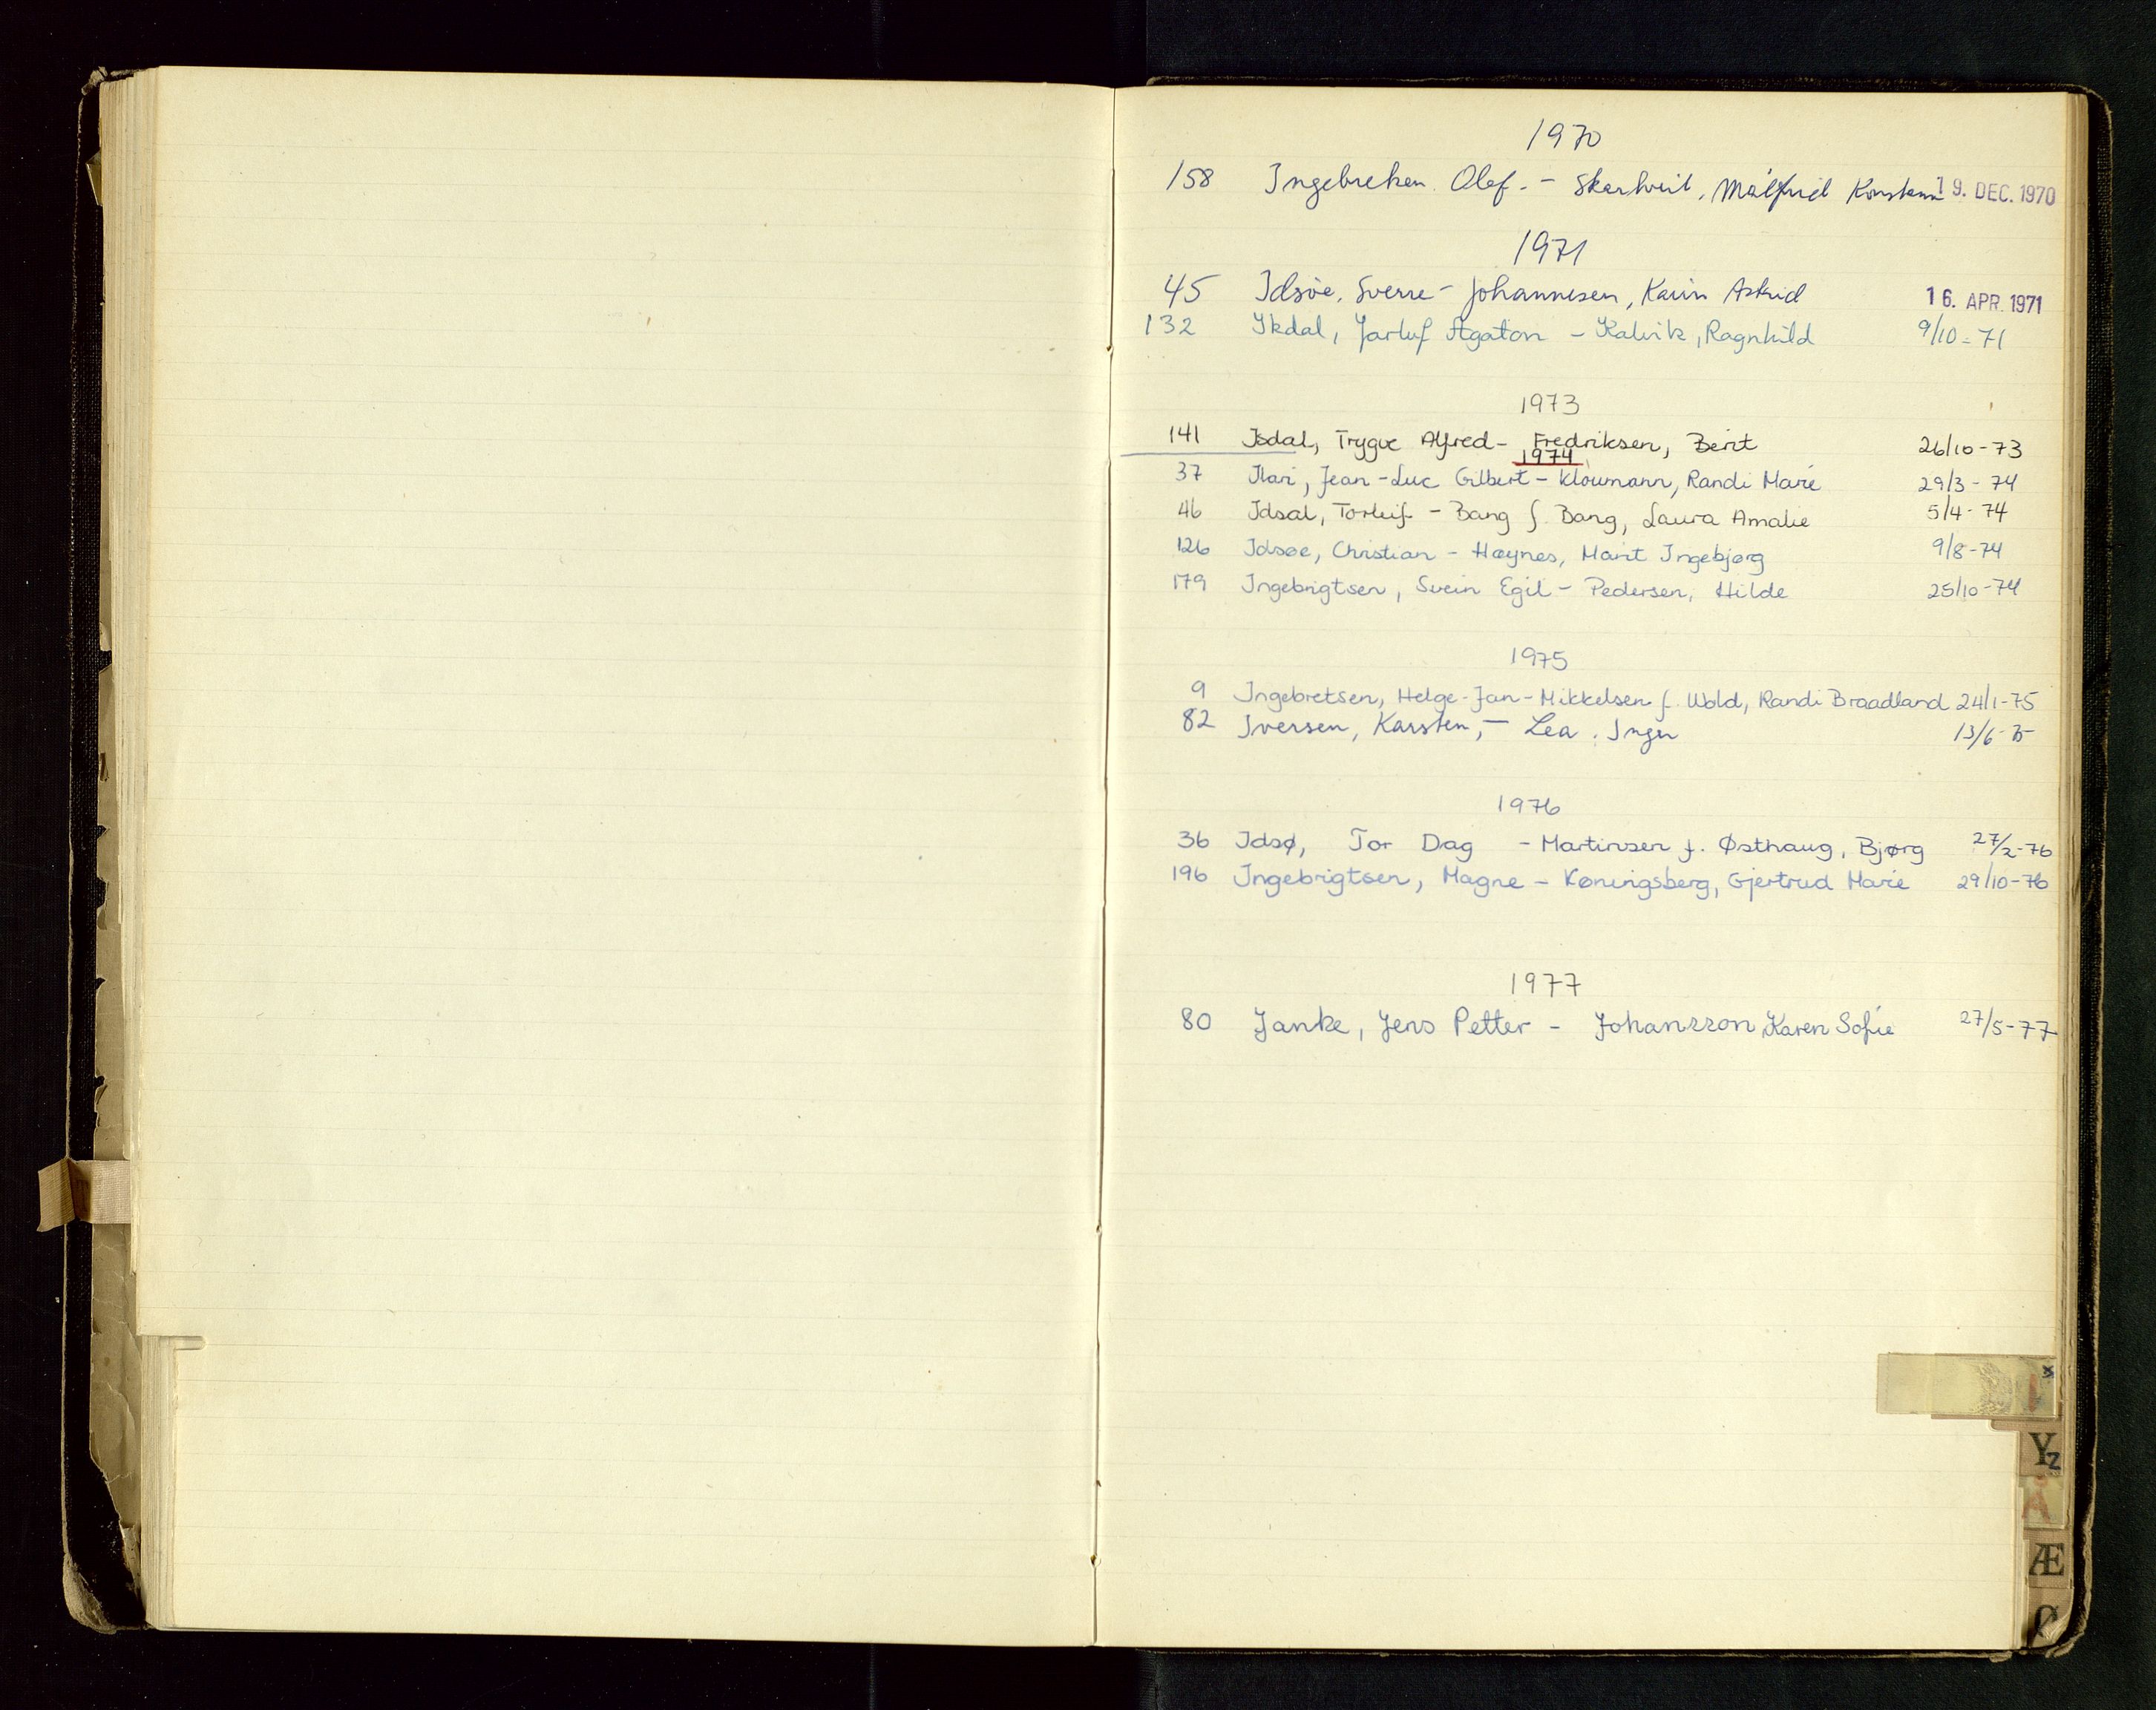 1970
158 Ingebretsen. Olef. - Målfrid 19. DEC. 1970
1971
45 Idsöe, Sverre - Johannesen, Karin Astrid 16. APR. 1971
132 Ikdal, Jarluf Agaton - Kalvik, Ragnhild 9/10-71
1973
141 Isdal, Trygve Alfred - Fredriksen, Berit 26/10-73
1974
37 Ilari, Jean-Luc Gilbert - Kloumann, Randi Marie 29/3-74
46 Idsal, Torleif - Bang f. Bang, Laura Amalie 5/4-74
126 Idsøe, Christian - Høynes, Marit Ingebjørg 9/8-74
179 Ingebrigtsen, Svein Egil - Pedersen, Hilde 25/10-74
1975
9 Ingebretsen, Helge-Jan - Mikkelsen f. Wold, Randi Braadland 24/1-75
82 Iversen, Karsten, - Lea, Inger 13/6-75
1976
36 Idsø, Tor Dag - Martinsen f. Østhaug, Bjørg 27/2-76
196 Ingebrigtsen, Magne - Køningsberg, Gjertrud Marie 29/10-76
1977
80 Janke, Jens Petter - Johansson, Karen Sofie 27/5-77
I
Yz
Å
Æ
Ø